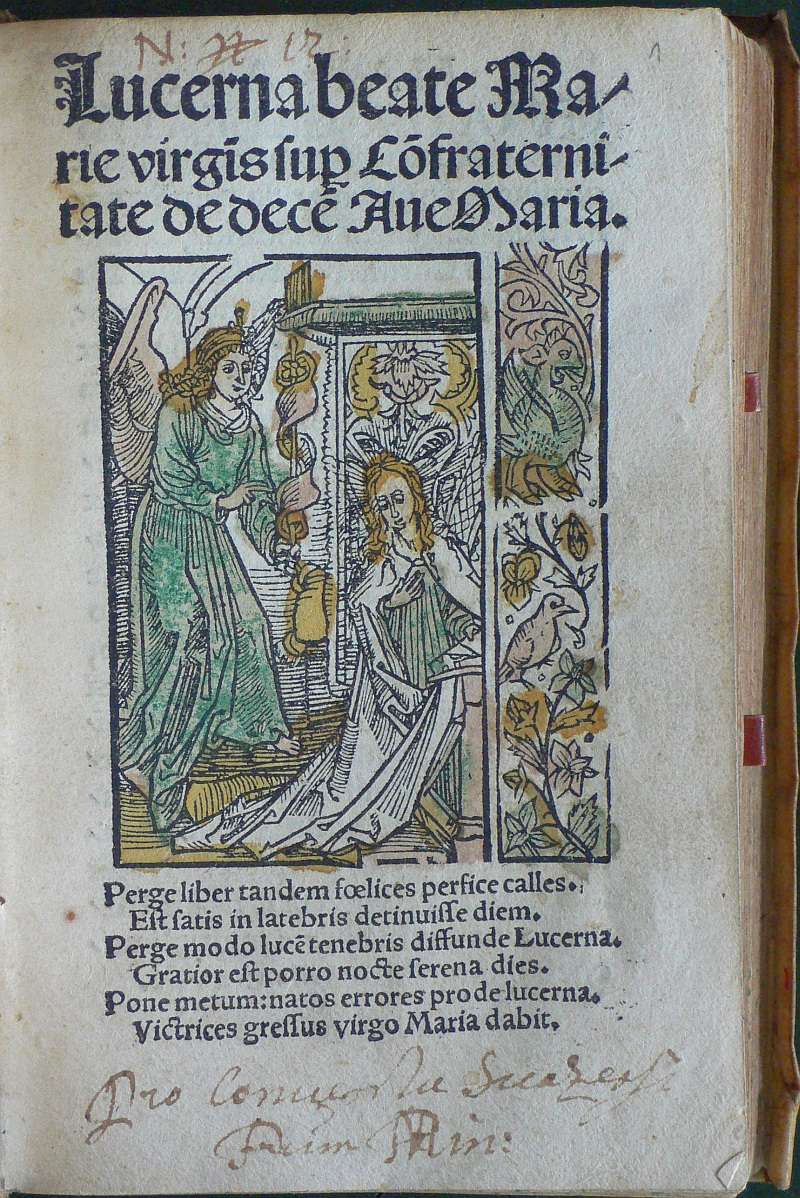 N: 12:
1
Lucerna beate Ma⸗
rie virgīs suꝑ Cōfraterni⸗
tate de decē Aue Maria.
Perge liber tandem fœlices perfice calles.
Est satis in latebris detinuisse diem.
Perge modo lucē tenebris diffunde Lucerna.
Gratior est porro nocte serena dies.
Pone metum:natos errores prode lucerna.
Victrices gressus virgo Maria dabit.
Pro
Min: